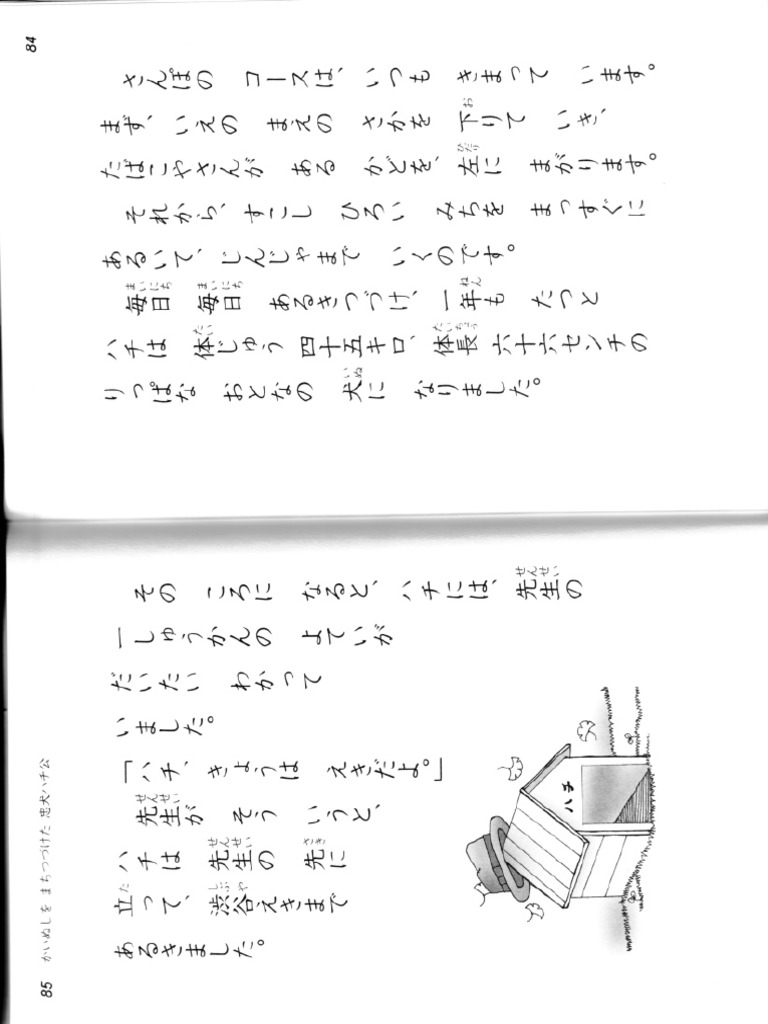 さんぽの コースは、いつも きまって います。
まず、いえの まえの さかを 下りて いき、
たばこやさんが ある かどを、左に まがります。
それから、すこし ひろい みちを まっすぐに
あるいて、じんじゃまで いくのです。
毎日 毎日 あるきつづけ、一年も たつと
ハチは 体じゅう 四十五キロ、体長 六十六センチの
りっぱな おとなの 犬に なりました。
84
その ころに なると、ハチには、先生の
一しゅうかんの よていが
だいたい わかって
いました。
「ハチ、きょうは えきだよ。」
先生が そう いうと、
ハチは 先生の 先に
立って、渋谷えきまで
あるきました。
ハチ
85 かいぬしを まちつづけた 忠犬ハチ公